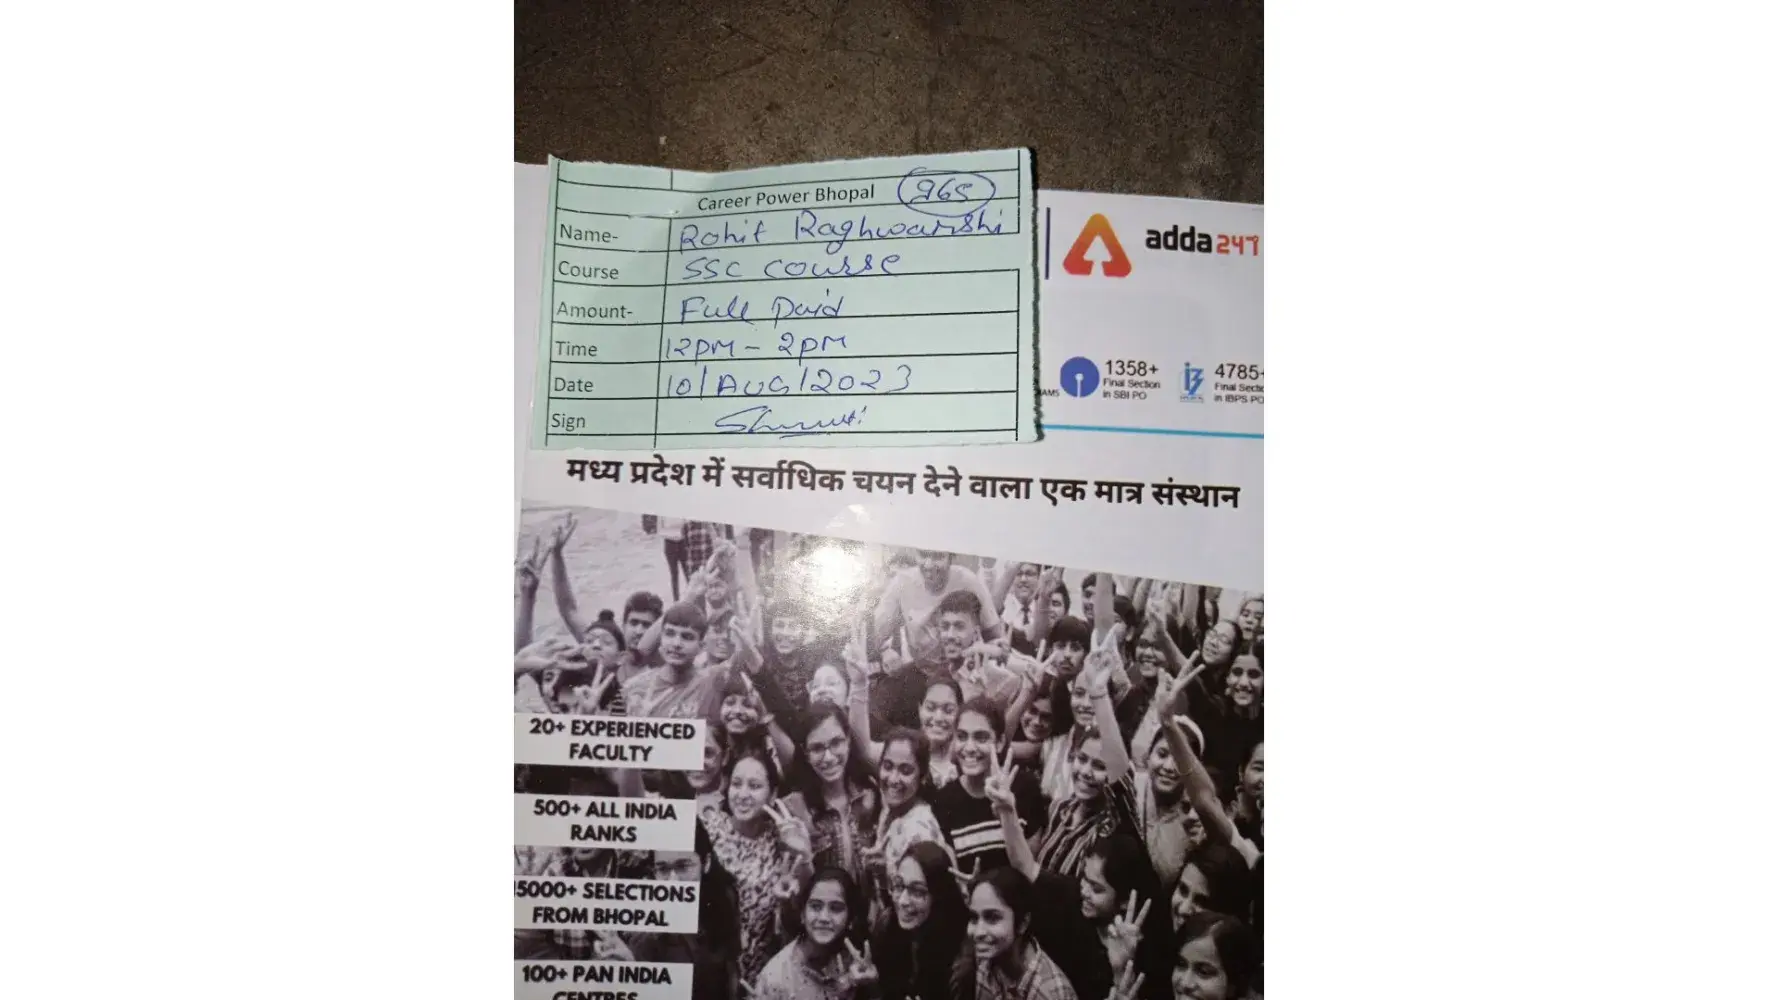 Career Power Bhopal 265
Name- Rohit Raghwanshi
Course SSC Course
Amount- Full Paid
Time 12PM - 2PM
Date 10/AUG/2023
Sign Shruti
adda247
1358+
Final Section
in SBI PO
4785+
Final Secti
in IBPS PO
AMS
मध्य प्रदेश में सर्वाधिक चयन देने वाला एक मात्र संस्थान
20+ EXPERIENCED
FACULTY
500+ ALL INDIA
RANKS
15000+ SELECTIONS
FROM BHOPAL
100+ PAN INDIA
CENTRES